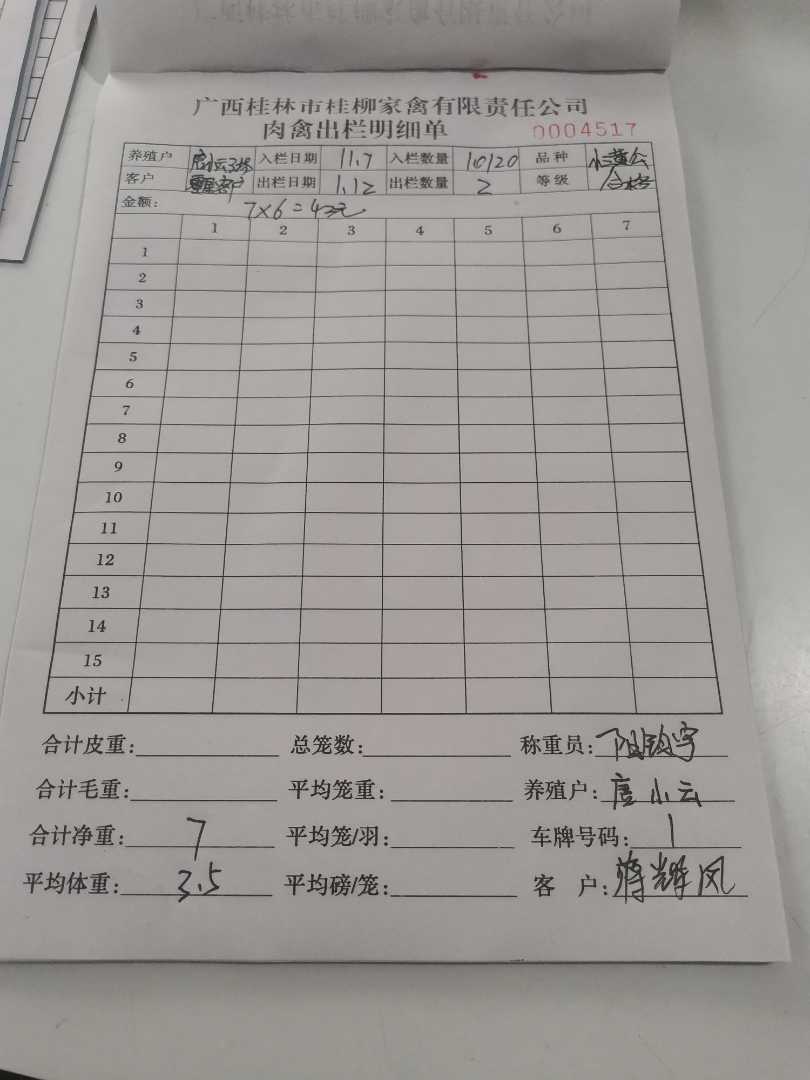 广西桂林市桂柳家禽有限责任公司
肉禽出栏明细单 0004517
养殖户 唐小云3场 入栏日期 11.7 入栏数量 10120 品种 小三黄公
客户 零星客户 出栏日期 1.12 出栏数量 2 等级 合格
金额: 7×6=42元
1 2 3 4 5 6 7
1
2
3
4
5
6
7
8
9
10
11
12
13
14
15
小计
合计皮重: 总笼数: 称重员:阳钧宇
合计毛重: 平均笼重: 养殖户:唐小云
合计净重:7 平均笼/羽: 车牌号码:1
平均体重:3.5 平均磅/笼: 客 户:蒋辉凤